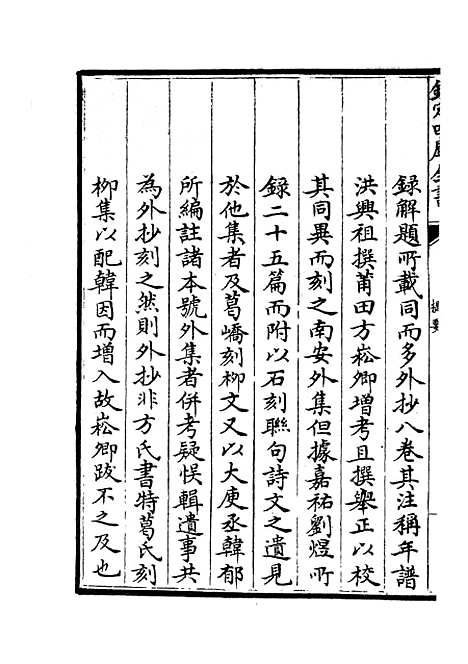 錄解題所載同而多外抄八卷其注稱年譜
洪興祖撰莆田方崧卿增考且撰舉正以校
其同異而刻之南安外集但據嘉祐劉煜所
錄二十五篇而附以石刻聯句詩文之遺見
於他集者及葛嶠刻柳文又以大庾丞韓郁
所編註諸本號外集者併考疑悮輯遺事共
為外抄刻之然則外抄非方氏書特葛氏刻
柳集以配韓因而增入故崧卿跋不之及也